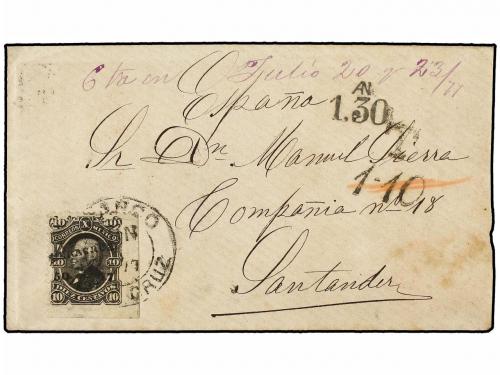 6 tre en Julio 20 y 23/77
España
AN.
1.30
Sr. Dn. Manuel Sierra
1-10
Compañia nº 18
Santander
CORREOS MEXICO
10 10
10 10
CENTAVOS
CRUZ